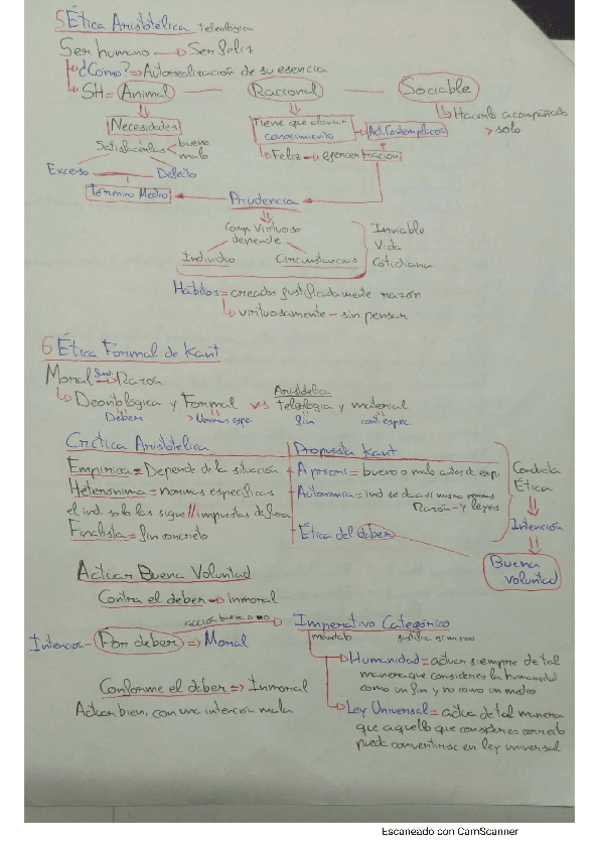 5 Ética Aristotélica teleológica
Ser humano → Ser feliz
¿Cómo? ⇒ Autorrealización de su esencia
SH = Animal Racional Sociable
Hacerlo acompañado
solo
Necesidades
Tiene que alcanzar
conocimiento
Act. Contemplativa
Satisfacerlas bueno
malo
Feliz → ejercer razón
Exceso Defecto
Término Medio Prudencia
Comp. Virtuoso
depende
Individuo Circunstancias
Inviable
Vida
Cotidiana
Hábitos = creados justificadamente razón
virtuosamente - sin pensar
6 Ética Formal de Kant
Moral → Razón
Deontológica y Formal vs Teleológica y material
Aristóteles
Deber Normas espe. fin cont. espec.
Crítica Aristotélica Propuesta Kant
Empírica = Depende de la situación
A priori = bueno o malo antes de exp.
Heterónoma = normas específicas
el ind. solo las sigue // impuestas de fuera
Autonomía = ind se da a sí mismo normas
Razón - y leyes
Finalista = fin concreto
Ética del deber
Conducta
Ética
Intención
Buena
Voluntad
Actuar Buena Voluntad
Contra el deber → inmoral
acción buena o no
Intención - Por deber ⇒ Moral
Conforme el deber ⇒ Inmoral
Actuar bien, con una intención mala
Imperativo Categórico
mandato
Humanidad = actuar siempre de tal
manera que consideres la humanidad
como un fin y no como un medio
Ley Universal = actua de tal manera
que aquello que consideres correcto
pueda convertirse en ley universal
Escaneado con CamScanner